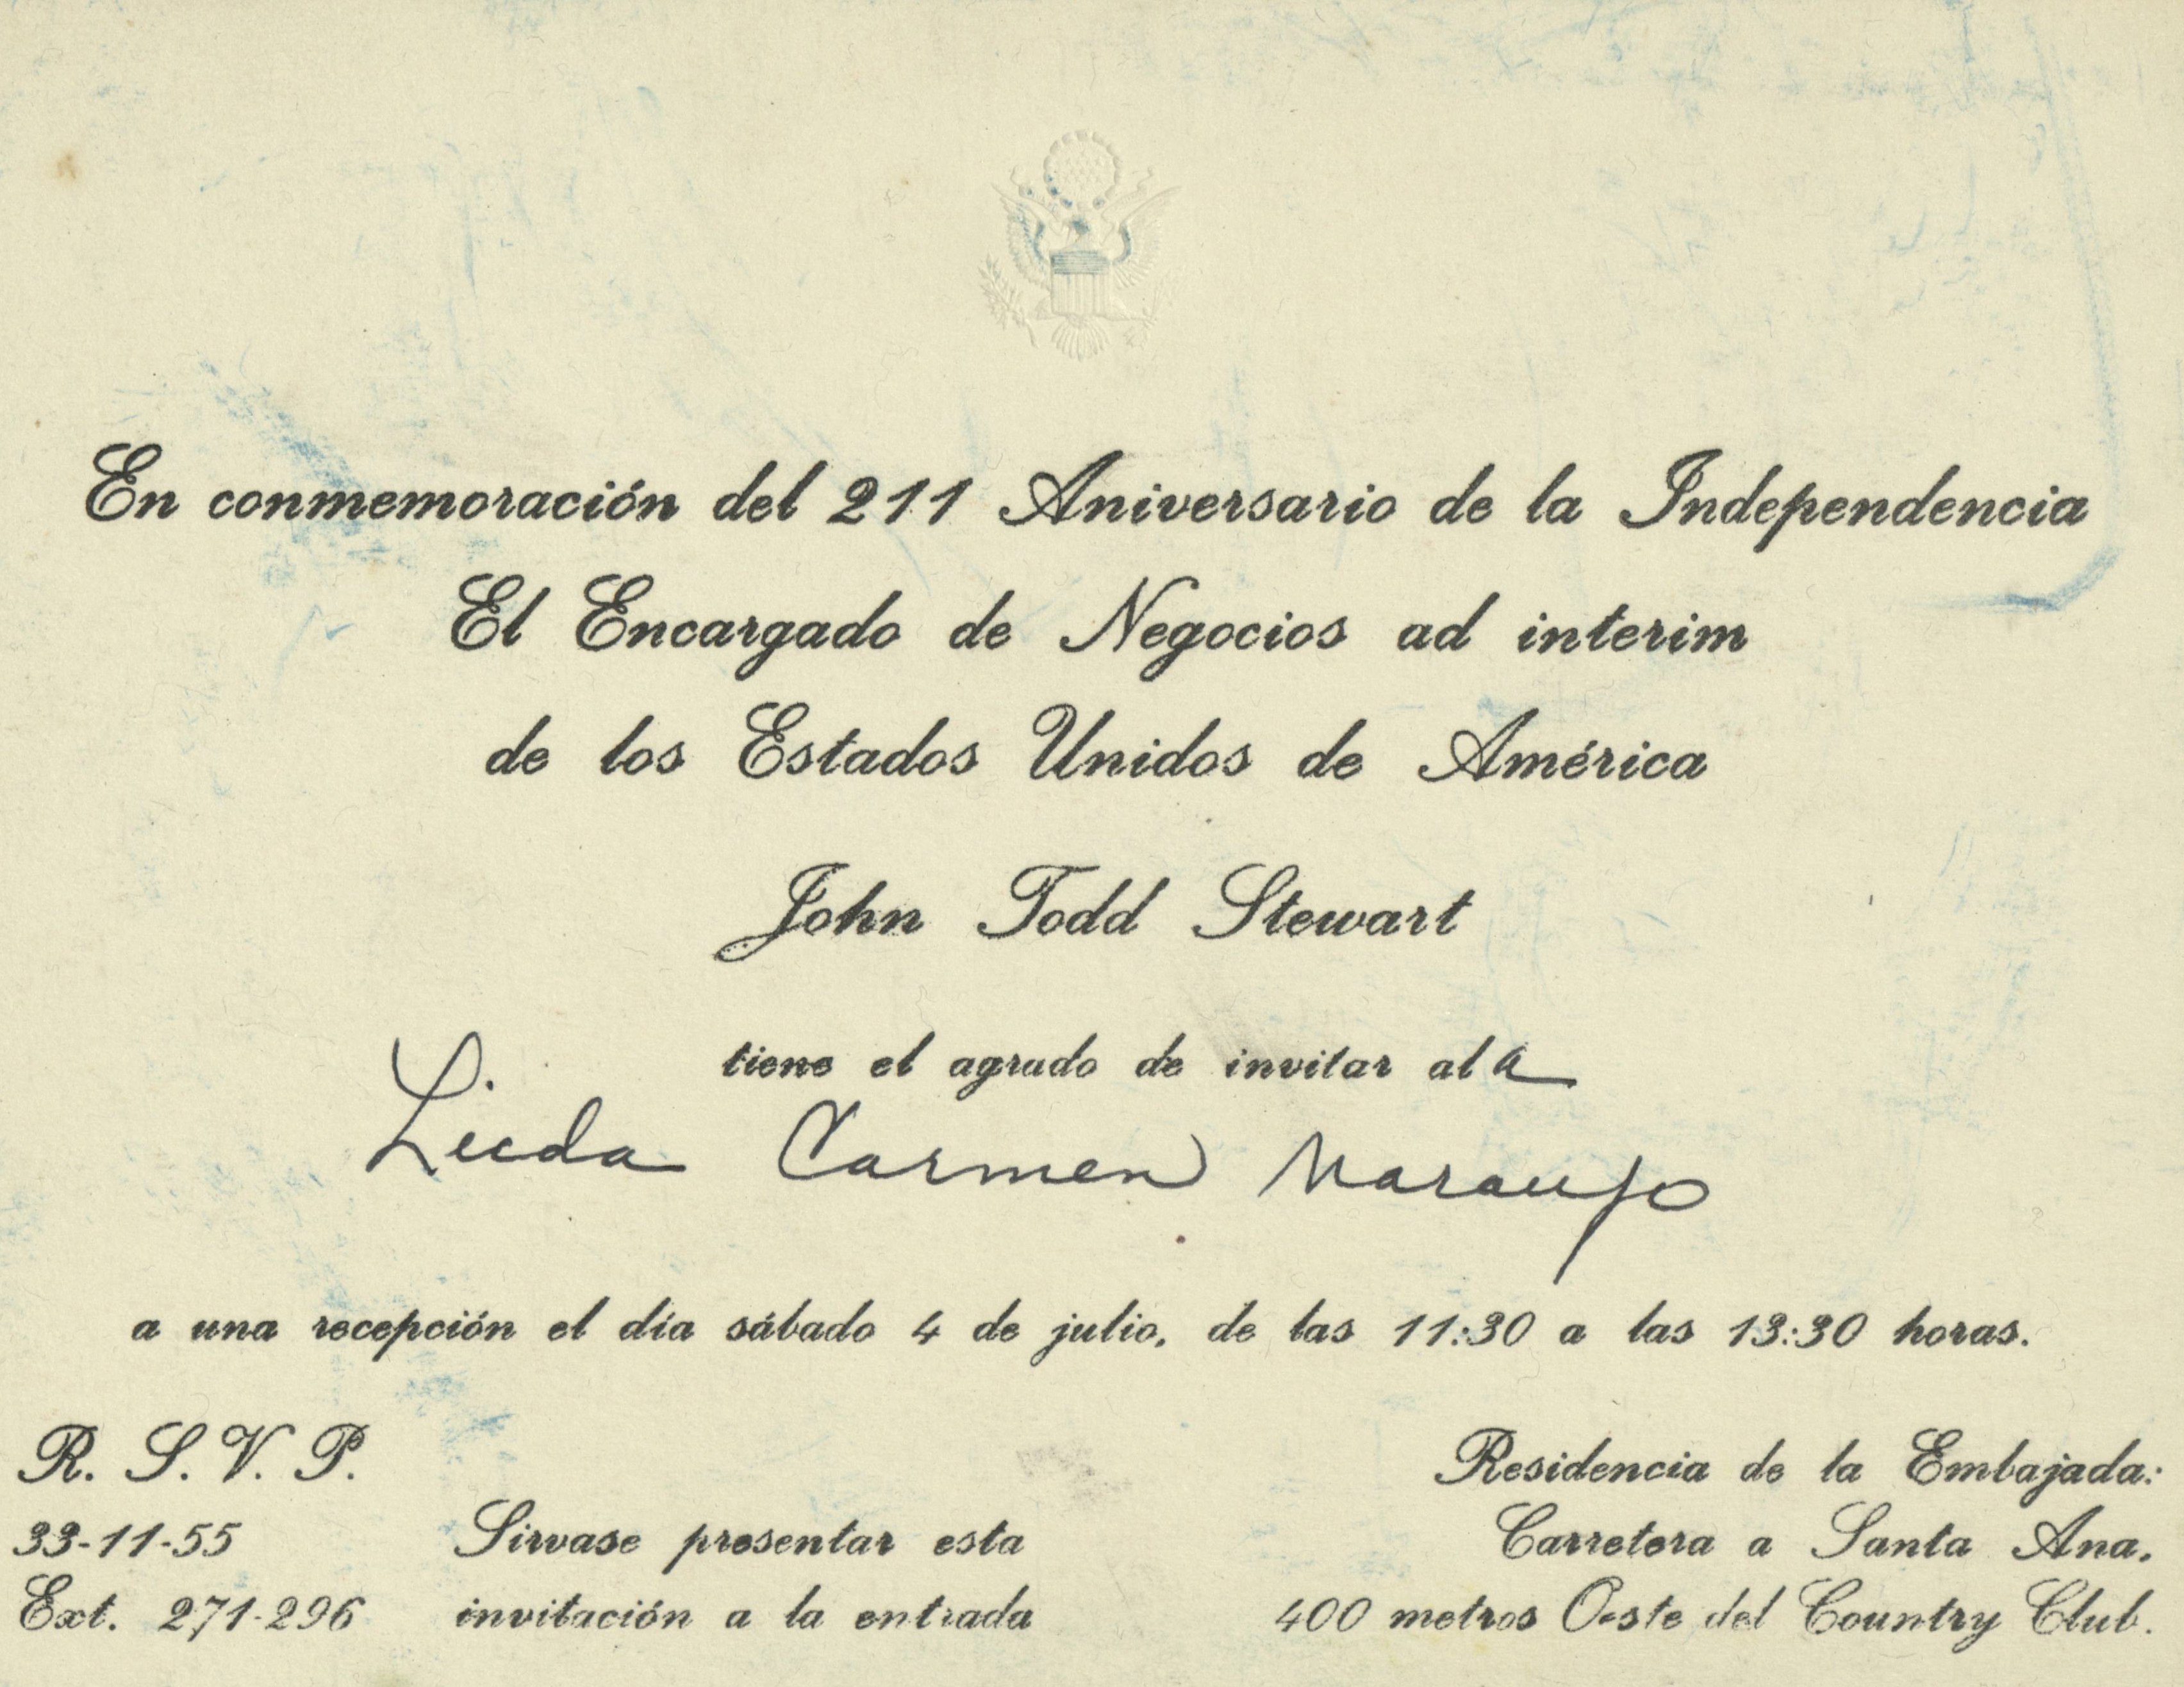 En conmemoración del 211 Aniversario de la Independencia
El Encargado de Negocios ad interim
de los Estados Unidos de América
John Todd Stewart
tiene el agrado de invitar al a
Licda Carmen Naranjo
a una recepción el día sábado 4 de julio, de las 11:30 a las 13:30 horas.
R. S. V. P.
33-11-55
Ext. 271-296
Sirvase presentar esta
invitación a la entrada
Residencia de la Embajada:
Carretera a Santa Ana,
400 metros Oeste del Country Club.